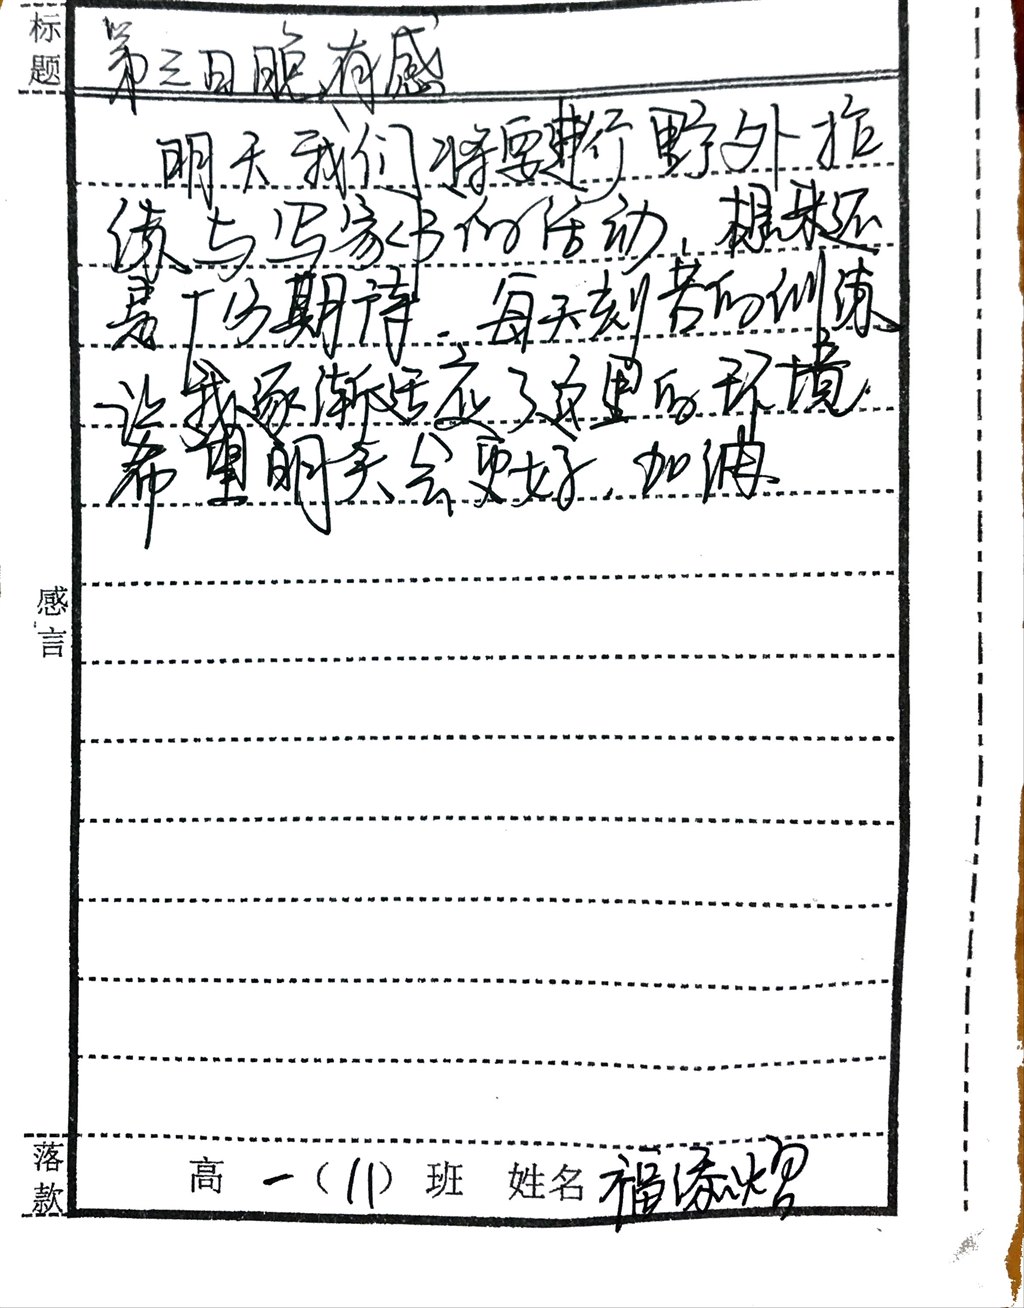 标题
第三日晚有感
明天我们将要进行野外拉
练与写家书的活动，想来还
是十分期待。每天刻苦的训练
让我逐渐适应了这里的环境
希望明天会更好，加油
感言
落款
高一（11）班 姓名 福添熠